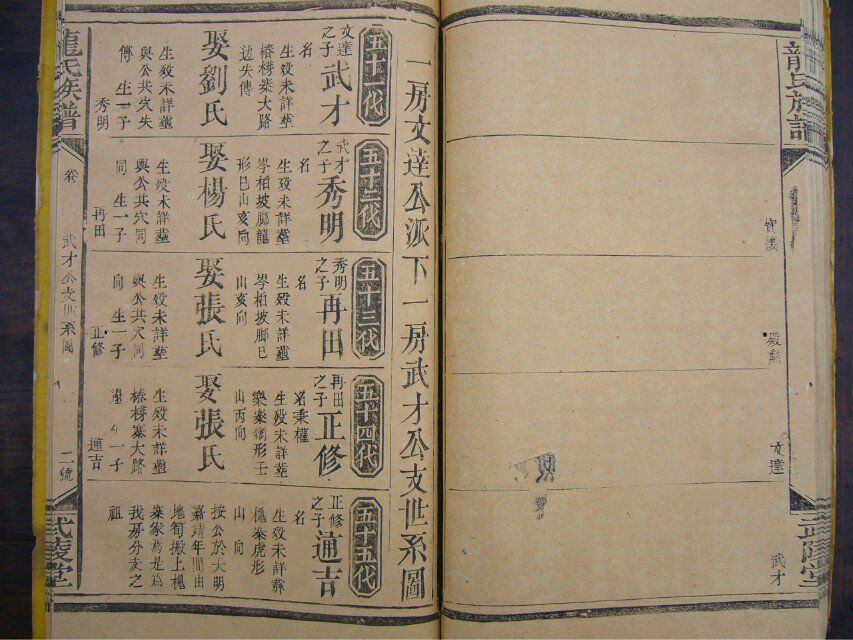 龍氏族譜
實懷
殿勲
文達
武才
武陵堂
一房文達公派下一房武才公支世系圖
五十一代
文達之子武才
名
生歿未詳塟
椿楞寨大路
边失傳
娶劉氏
生歿未詳塟
與公共穴失
傳 生一子
秀明
五十二代
武才之子秀明
名
生歿未詳塟
岑栢坡脚龍
形巳山亥向
娶楊氏
生歿未詳塟
與公共穴同
同 生一子
再田
五十三代
秀明之子再田
名
生歿未詳塟
岑栢坡脚巳
山亥向
娶張氏
生歿未詳塟
與公共穴同
向 生一子
正修
五十四代
再田之子正修
名秉權
生歿未詳塟
山丙向
娶張氏
生歿未詳塟
椿楞寨大路
邊 生一子
通吉
五十五代
正修之子通吉
名
生歿未詳葬
槐寨虎形
山 向
按公於大明
嘉靖年間由
地筍搬上槐
寨家焉是爲
我房分支之
祖
龍氏族譜
卷
武才公支世系圖
二號
武陵堂